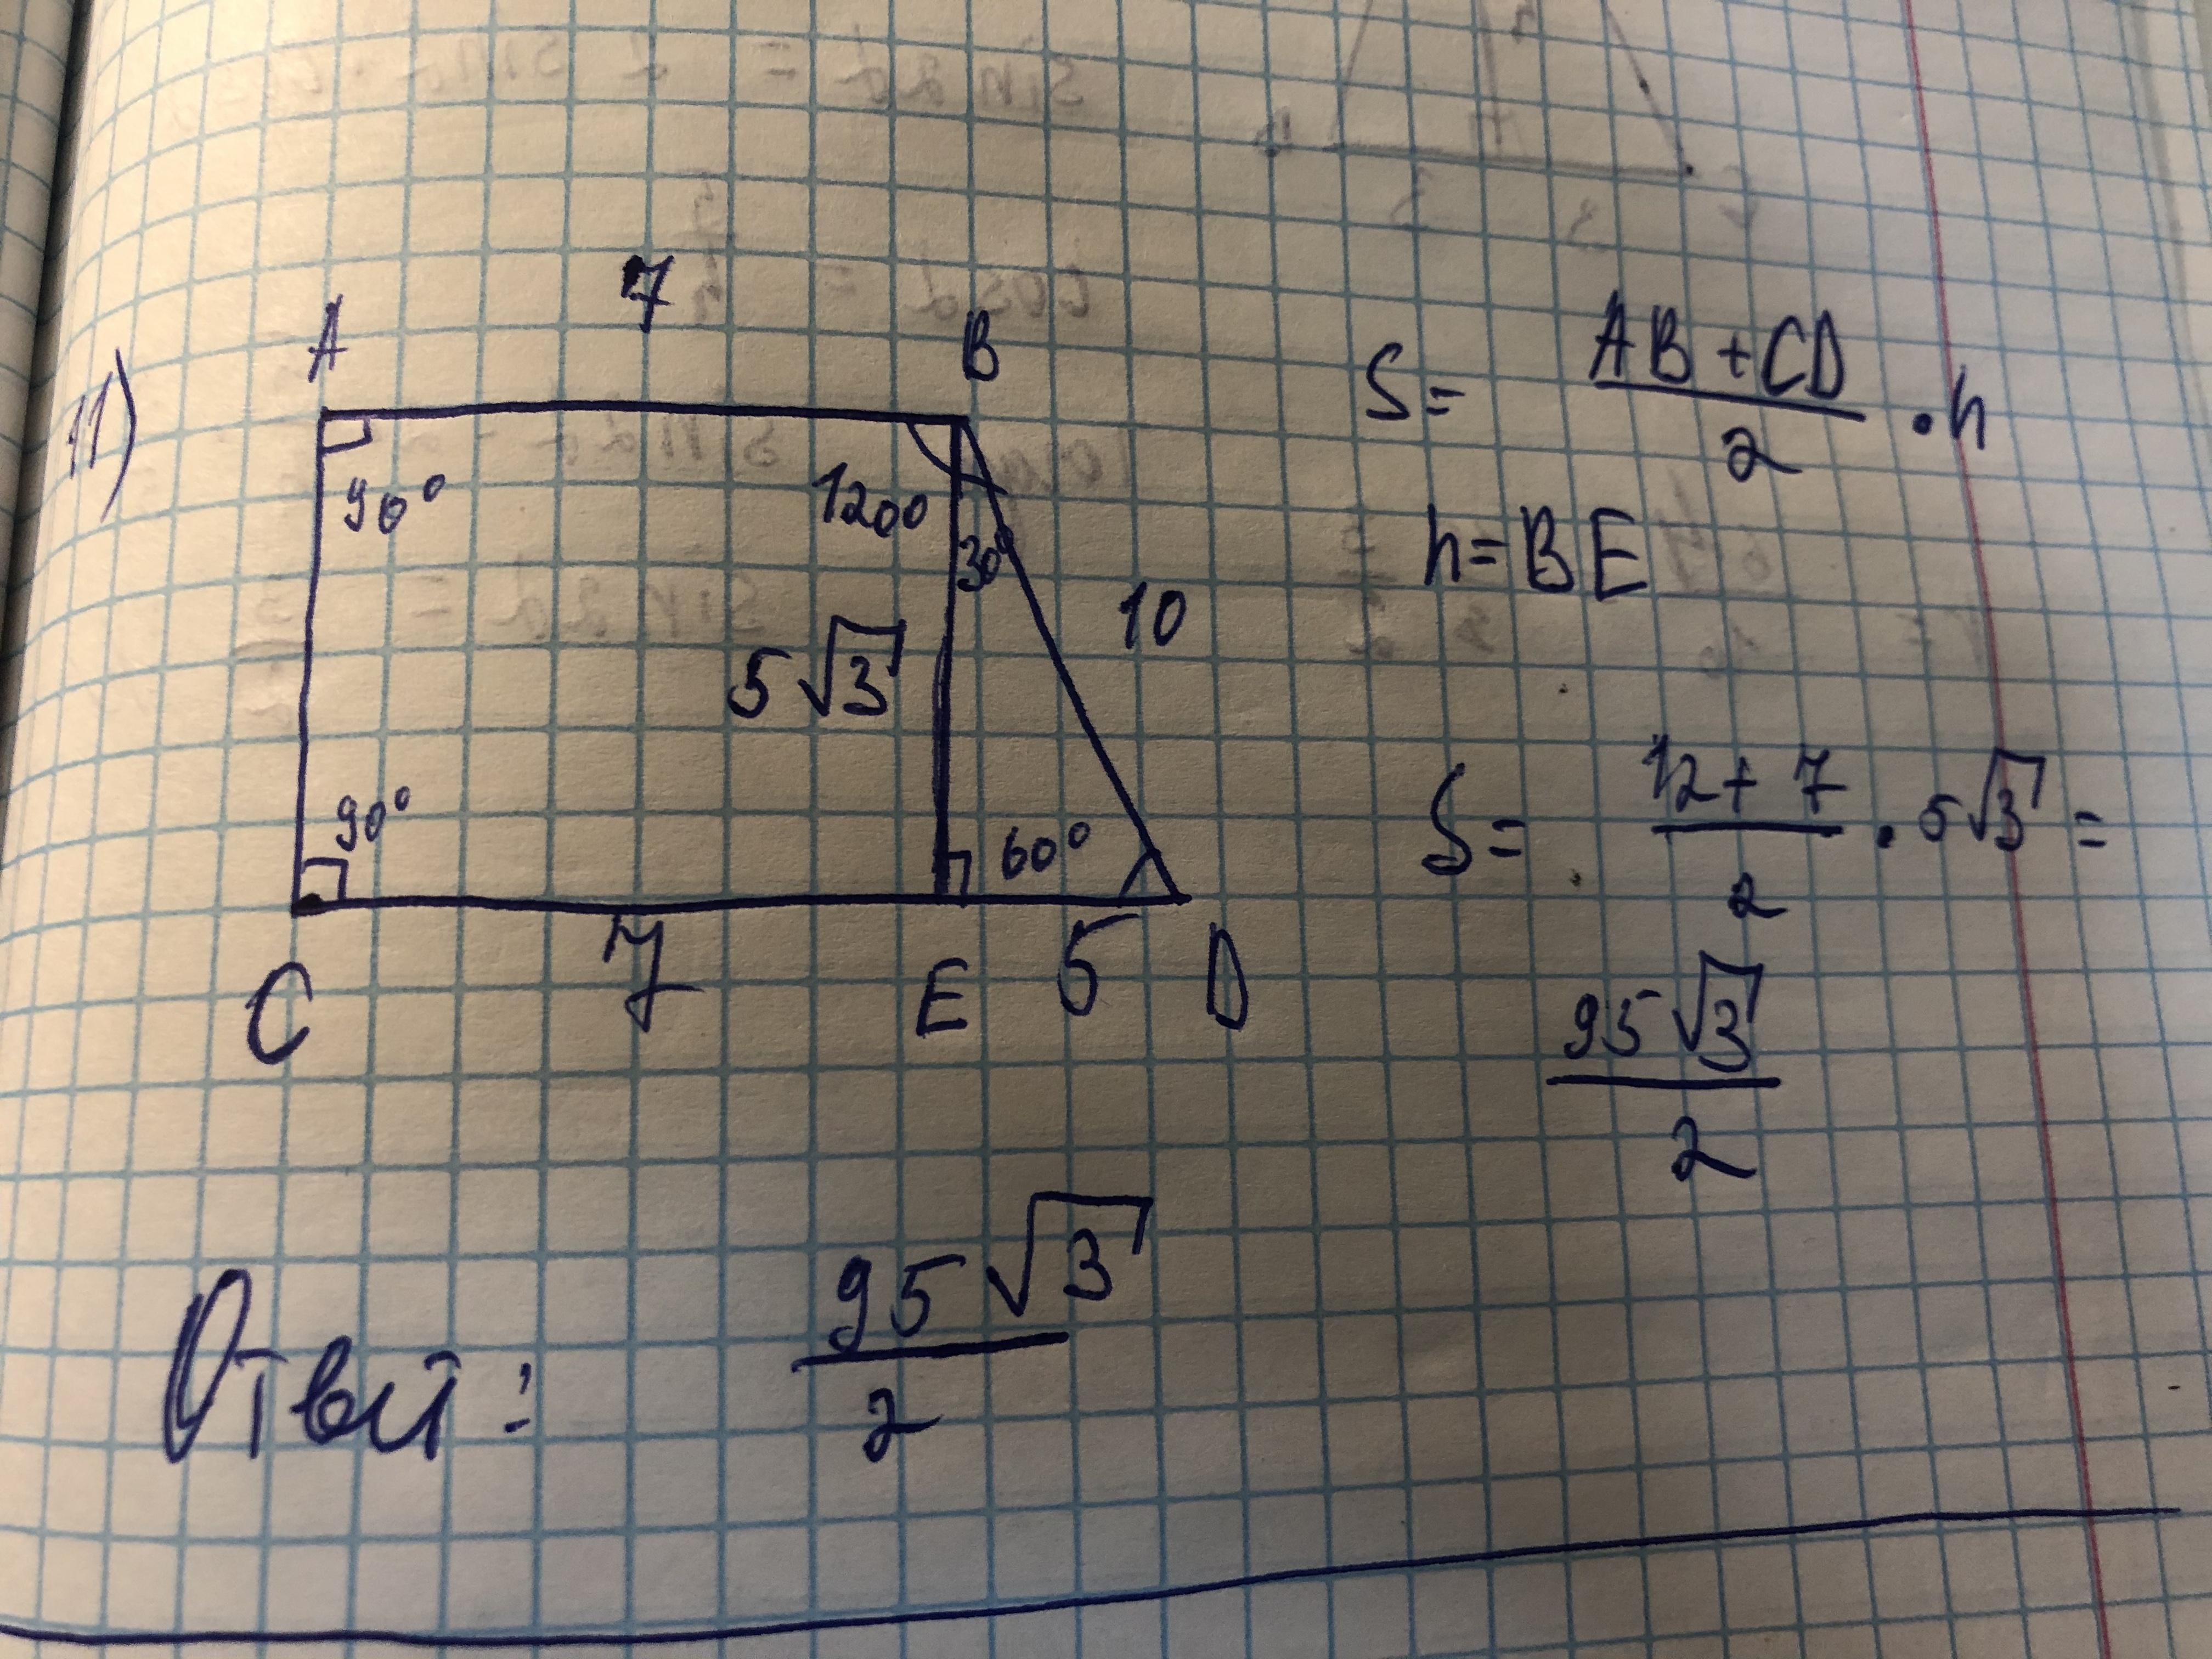 11)
7
A B
90° 120° 30°
5√3 10
90° 60°
C 7 E 5 D
S = (AB + CD)/2 · h
h = BE
S = (12 + 7)/2 · 5√3 =
95√3/2
Ответ: 95√3/2